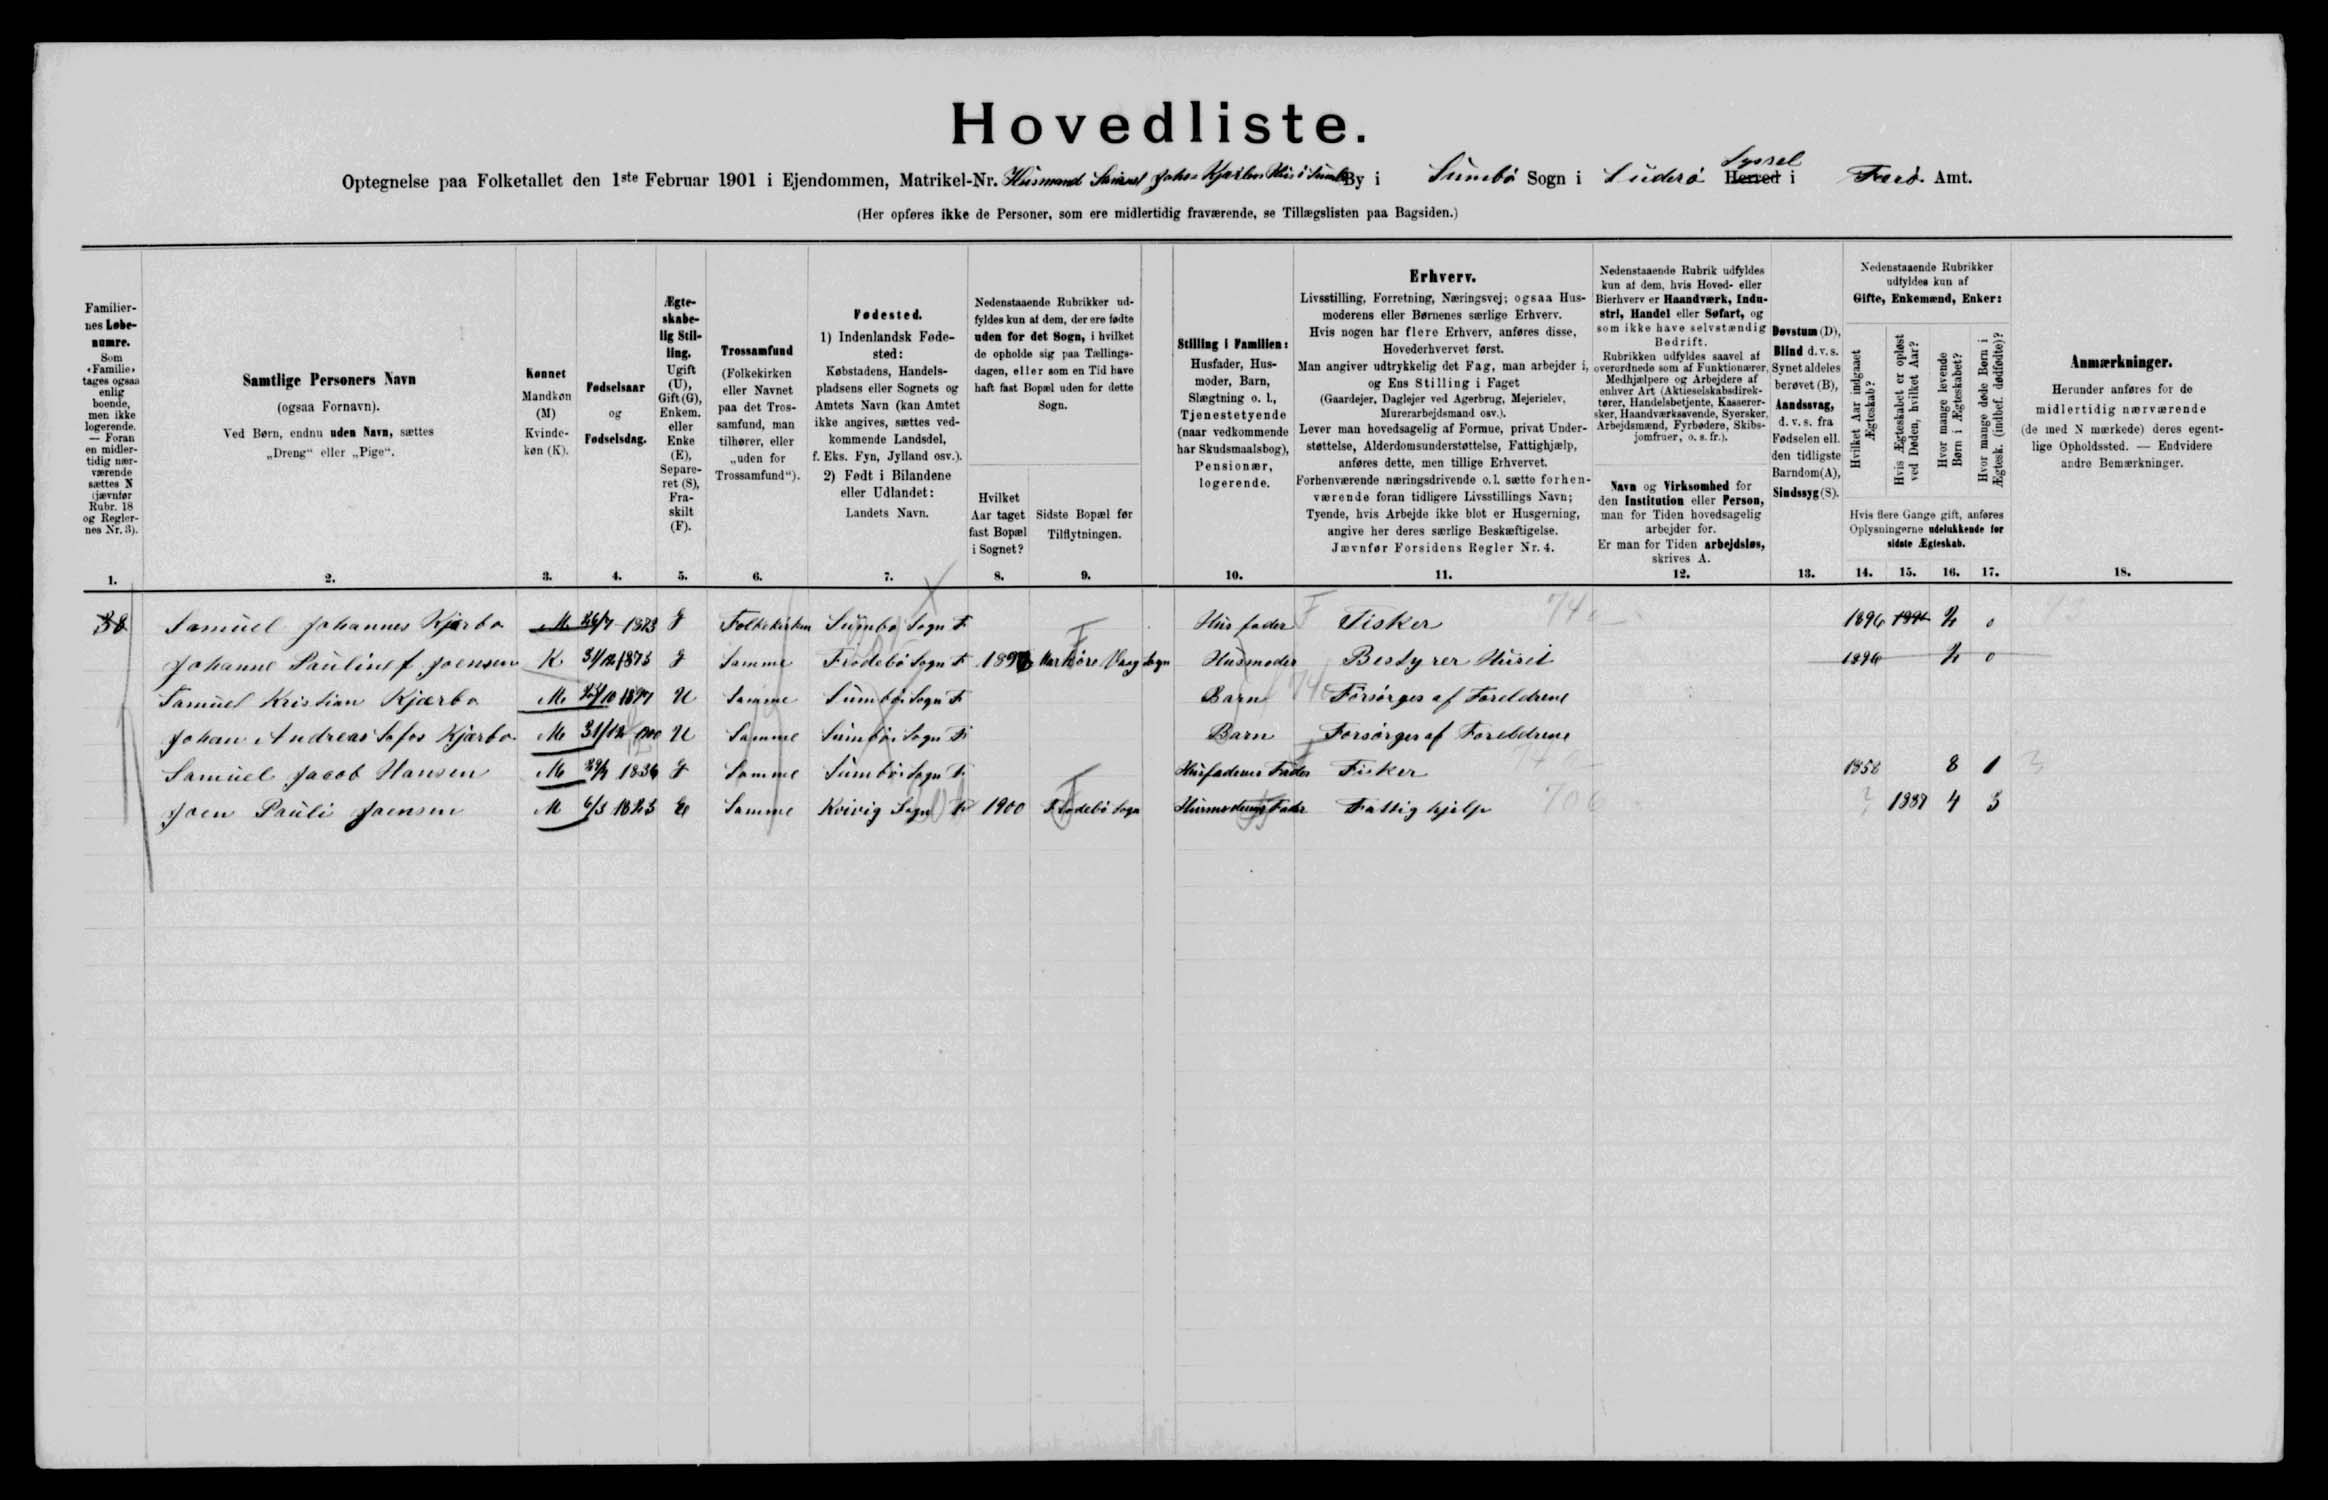 Hovedliste.
Optegnelse paa Folketallet den 1ste Februar 1901 i Ejendommen, Matrikel-Nr. Husmand Samuel Johs Kjærbos Hus i Sumbø By i Sumbø Sogn i Suderø Herred Syssel i Færø Amt.
(Her opføres ikke de Personer, som ere midlertidig fraværende, se Tillægslisten paa Bagsiden.)
Familiernes Løbenumre. Som «Familie» tages ogsaa enlig boende, men ikke logerende. — Foran en midlertidig nærværende sættes N (jævnfør Rubr. 18 og Reglernes Nr. 3).
Samtlige Personers Navn (ogsaa Fornavn). Ved Børn, endnu uden Navn, sættes „Dreng“ eller „Pige“.
Kønnet Mandkøn (M) Kvindekøn (K).
Fødselsaar og Fødselsdag.
Ægteskabelig Stilling. Ugift (U), Gift (G), Enkem. eller Enke (E), Separeret (S), Fraskilt (F).
Trossamfund (Folkekirken eller Navnet paa det Trossamfund, man tilhører, eller „uden for Trossamfund“).
Fødested. 1) Indenlandsk Fødested: Købstadens, Handelspladsens eller Sognets og Amtets Navn (kan Amtet ikke angives, sættes vedkommende Landsdel, f. Eks. Fyn, Jylland osv.). 2) Født i Bilandene eller Udlandet: Landets Navn.
Nedenstaaende Rubrikker udfyldes kun af dem, der ere fødte uden for det Sogn, i hvilket de opholde sig paa Tællingsdagen, eller som en Tid have haft fast Bopæl uden for dette Sogn.
Hvilket Aar taget fast Bopæl i Sognet?
Sidste Bopæl før Tilflytningen.
Stilling i Familien: Husfader, Husmoder, Barn, Slægtning o. l., Tjenestetyende (naar vedkommende har Skudsmaalsbog), Pensionær, logerende.
Erhverv.
Livsstilling, Forretning, Næringsvej; ogsaa Husmoderens eller Børnenes særlige Erhverv.
Hvis nogen har flere Erhverv, anføres disse, Hovederhvervet først.
Man angiver udtrykkelig det Fag, man arbejder i, og Ens Stilling i Faget (Gaardejer, Daglejer ved Agerbrug, Mejerielev, Murerarbejdsmand osv.).
Lever man hovedsagelig af Formue, privat Understøttelse, Alderdomsunderstøttelse, Fattighjælp, anføres dette, men tillige Erhvervet.
Forhenværende næringsdrivende o. l. sætte forhenværende foran tidligere Livsstillings Navn; Tyende, hvis Arbejde ikke blot er Husgerning, angive her deres særlige Beskæftigelse.
Jævnfør Forsidens Regler Nr. 4.
Nedenstaaende Rubrik udfyldes kun af dem, hvis Hoved- eller Bierhverv er Haandværk, Industri, Handel eller Søfart, og som ikke have selvstændig Bedrift.
Rubrikken udfyldes saavel af overordnede som af Funktionærer, Medhjælpere og Arbejdere af enhver Art (Aktieselskabsdirektører, Handelsbetjente, Kasserersker, Haandværkssvende, Syersker, Arbejdsmænd, Fyrbødere, Skibsjomfruer, o. s. fr.).
Navn og Virksomhed for den Institution eller Person, man for Tiden hovedsagelig arbejder for.
Er man for Tiden arbejdsløs, skrives A.
Døvstum (D), Blind d. v. s. Synet aldeles berøvet (B), Aandssvag, d. v. s. fra Fødselen ell. den tidligste Barndom (A), Sindssyg (S).
Nedenstaaende Rubrikker udfyldes kun af Gifte, Enkemænd, Enker:
Hvilket Aar indgaaet Ægteskab?
Hvis Ægteskabet er opløst ved Døden, hvilket Aar?
Hvor mange levende Børn i Ægteskabet?
Hvor mange døde Børn i Ægtesk. (indbef. dødfødte)?
Hvis flere Gange gift, anføres Oplysningerne udelukkende for sidste Ægteskab.
Anmærkninger. Herunder anføres for de midlertidig nærværende (de med N mærkede) deres egentlige Opholdssted. — Endvidere andre Bemærkninger.
1. 2. 3. 4. 5. 6. 7. 8. 9. 10. 11. 12. 13. 14. 15. 16. 17. 18.
38 Samuel Johannes Kjærbo M 26/7 1873 G Folkekirken Sumbø Sogn F Husfader Fisker 1896 1896 2 0
Johanne Pauline f Joensen K 31/12 1873 G Samme Frodebø Sogn F Vaag Sogn Husmoder Bestyrer Huset 1896 2 0
Samuel Kristian Kjærbo M 1897 U Samme Sumbø Sogn F Barn Forsørges af Foreldrene
Johan Andreas Kjærbo M 31/12 1900 U Samme Sumbø Sogn F Barn Forsørges af Foreldrene
Samuel Jacob Hansen M 1834 G Samme Sumbø Sogn F Husfaderens Fader Fisker 1858 8 1
Joen Pauli Joensen M 6/3 1823 E Samme Kvivig Sogn F 1900 Frodebø Sogn Husmoderens Fader Fattighjelp 706 ? 1887 4 3